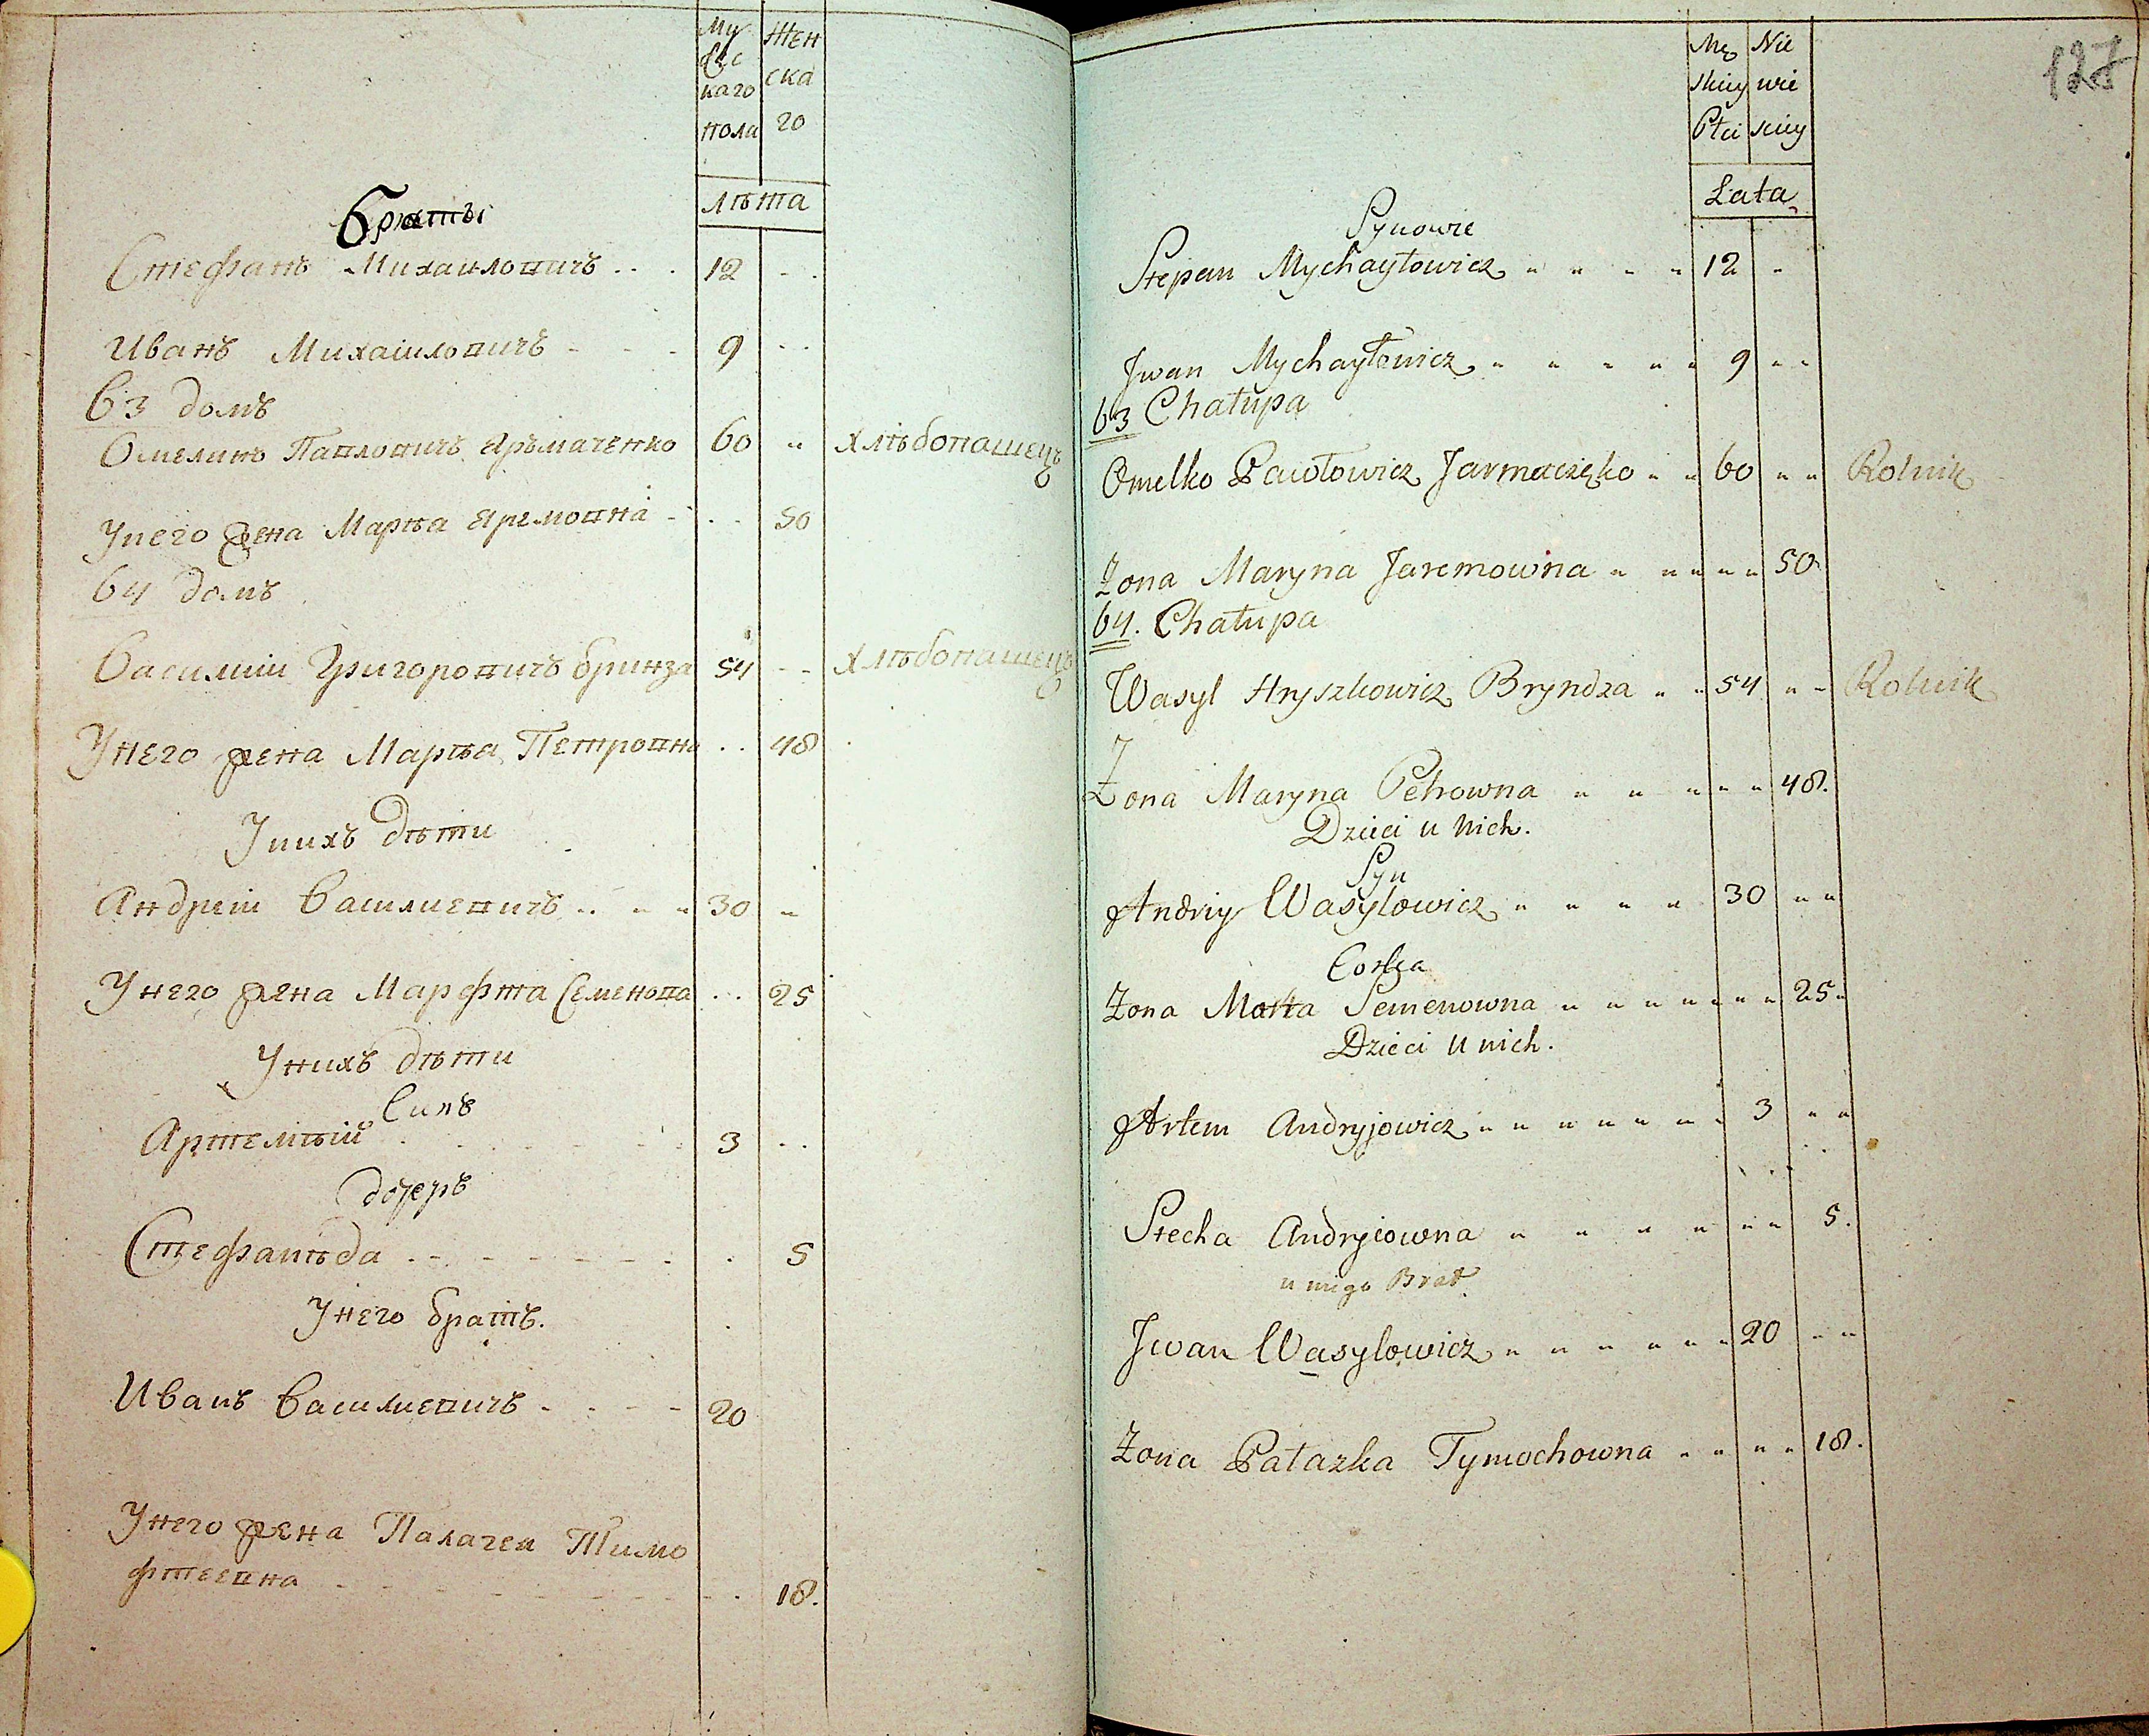 Му жес каго пола
Жен ска го
Лѣта
Браты
Стефанъ Михаиловичъ 12
Иванъ Михаиловичъ 9
63 домъ
Омелянъ Павловичъ Ярьмаченко 60 хлѣбопашецъ
Унего жена Марѣа Яремовна 50
64 домъ
Василии Григоровичъ бринза 54 хлѣбопашецъ
Унего жена Марѣа Петровна 48
Унихъ дѣти
Андреи Василиевичъ 30
Унего жена Марфта Семенова 25
Унихъ дѣти
Синъ
Артемѣй 3
дочеръ
Стефанѣда 5
Унего братъ.
Иванъ Василиевичъ 20
Унего жена Палагея Тимо
фтеевна 18.
127
Mę skiey Płci
Nie wie sciey
Lata
Synowie
Stepan Mychayłowicz 12
Jwan Mychayłowicz 9
63 Chałupa
Omelko Pawłowicz Jarmaczęko 60 Rolnik
Żona Maryna Jaremowna 50
64. Chałupa
Wasyl Hryszkowicz Bryndza 54 Rolnik
Żona Maryna Petrowna 48.
Dzieci u nich.
Syn
Andriy Wasylowicz 30
Corka
Żona Marta Semenowna 25
Dzieci u nich.
Artem Andryjowicz 3
Stecha Andryiowna 5.
u niego Brat
Jwan Wasylowicz 20
Żona Pałazka Tymochowna 18.